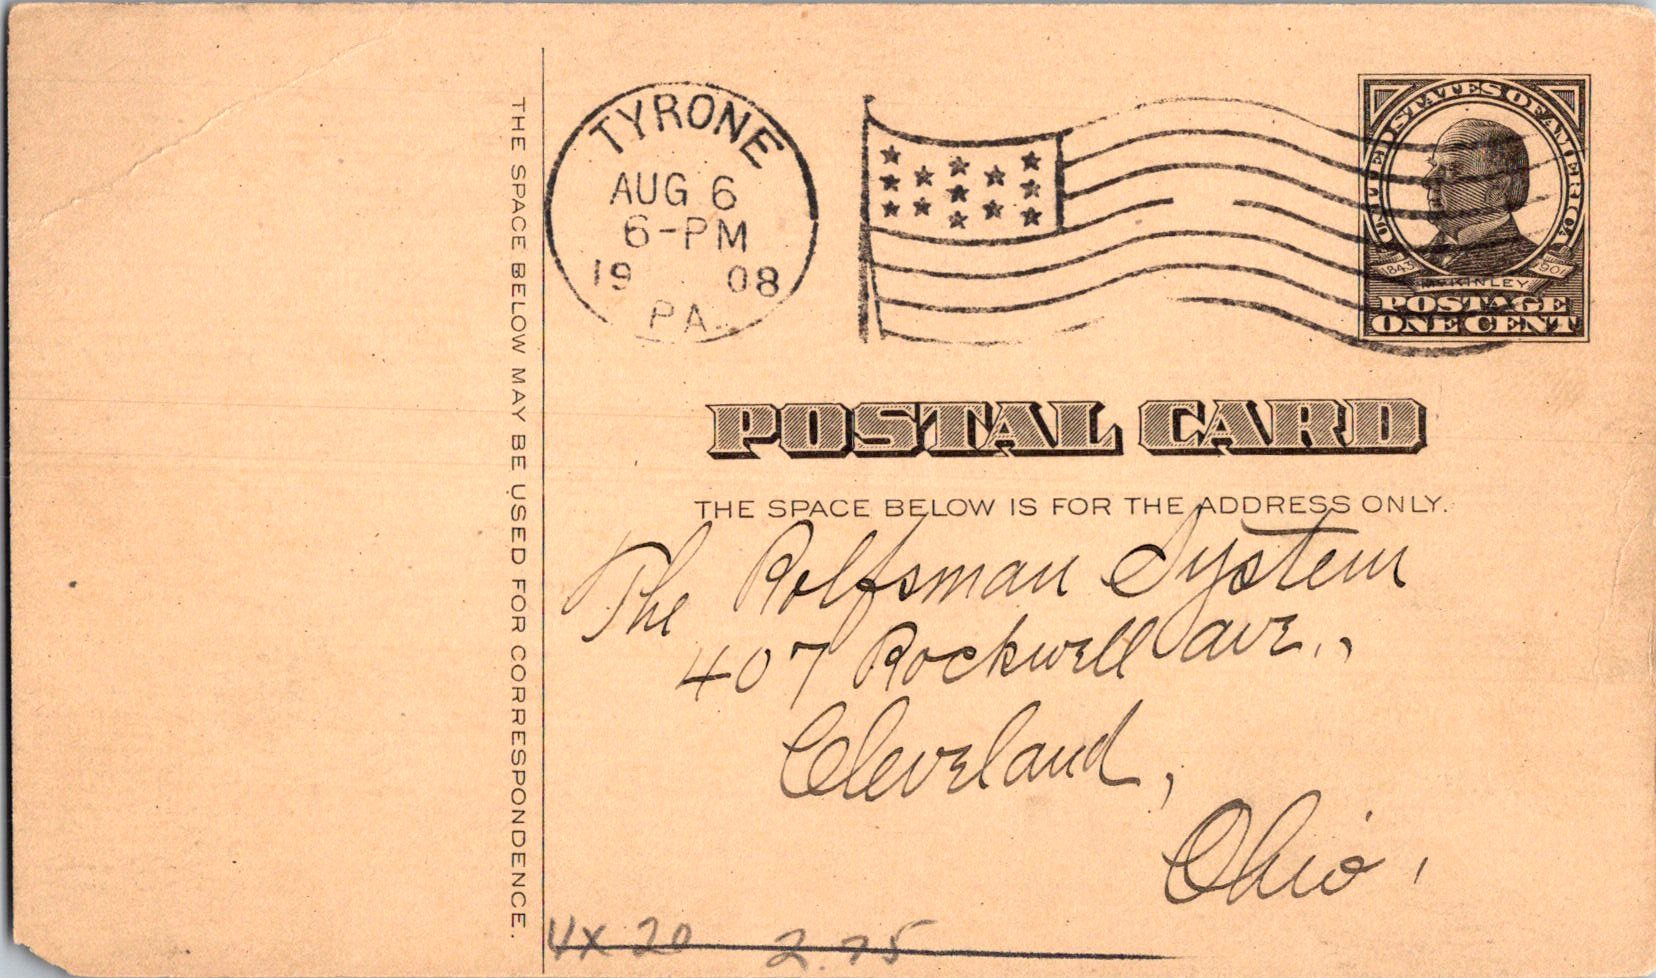 TYRONE
AUG 6
6-PM
19 08
PA.
UNITED STATES OF AMERICA
1843 1901
McKINLEY
POSTAGE
ONE CENT
THE SPACE BELOW MAY BE USED FOR CORRESPONDENCE.
POSTAL CARD
THE SPACE BELOW IS FOR THE ADDRESS ONLY.
The Rolfsman System
407 Rockwell ave.,
Cleveland,
Ohio,
UX 20 2.75